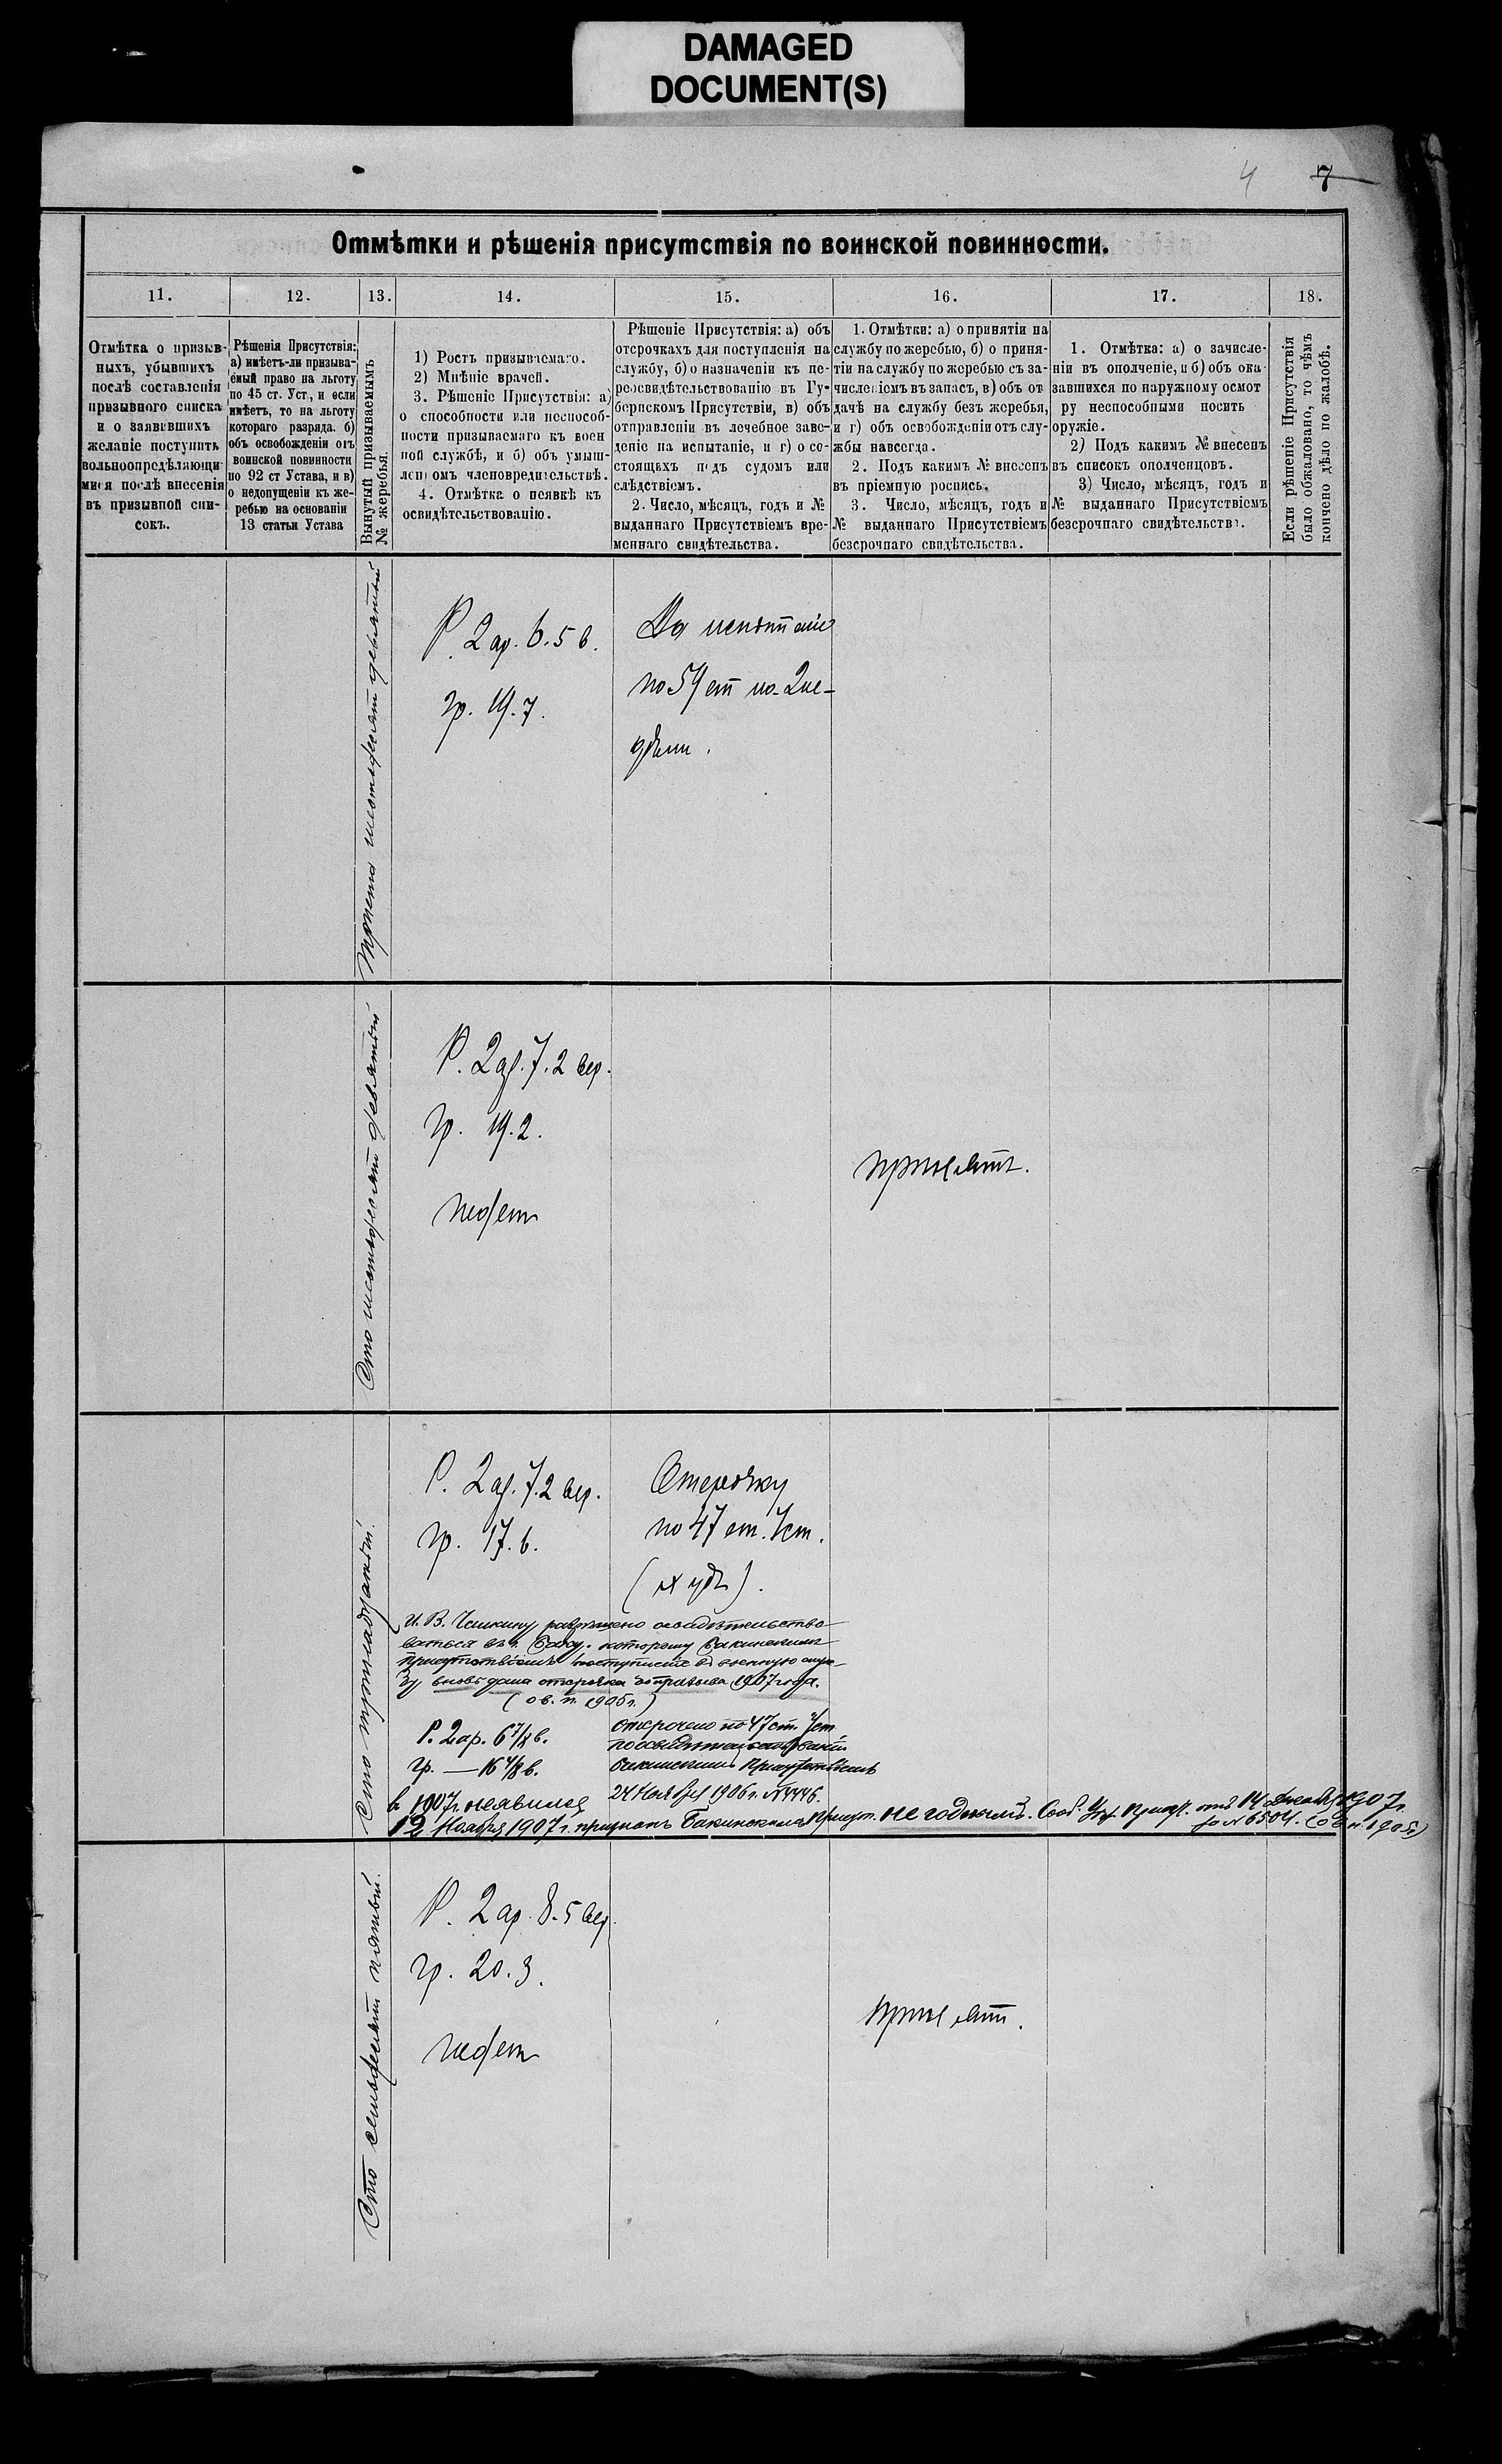 DAMAGED
DOCUMENT(S)
4 7
Отмѣтки и рѣшенія присутствія по воинской повинности.
11.
12.
13.
14.
15.
16.
17.
18.
Отмѣтка о призыв-
ныхъ, убывшихъ
послѣ составленія
призывного списка
и о заявившихъ
желаніе поступить
вольноопредѣляющи
мися послѣ внесенія
въ призывной спи-
сокъ.
Рѣшенія Присутствія:
а) имѣетъ-ли призыва-
емый право на льготу
по 45 ст. Уст., и если
имѣетъ, то на льготу
котораго разряда. б)
объ освобожденіи отъ
воинской повинности
по 92 ст Устава, и в)
о недопущеніи къ же-
ребью на основаніи
13 статьи Устава
Вынутый призываемымъ
№ жеребья.
1) Ростъ призываемаго.
2) Мнѣніе врачей.
3. Рѣшеніе Присутствія: а)
о способности или неспособ-
ности призываемаго къ воен
ной службѣ, и б) объ умыш-
ленномъ членовредительствѣ.
4. Отмѣтка о неявкѣ къ
освидѣтельствованію.
Рѣшеніе Присутствія: а) объ
отсрочкахъ для поступленія на
службу, б) о назначеніи къ пе-
реосвидѣтельствованію въ Гу-
бернскомъ Присутствіи, в) объ
отправленіи въ лечебное заве-
деніе на испытаніе, и г) о со-
стоящихъ подъ судомъ или
слѣдствіемъ.
2. Число, мѣсяцъ, годъ и №
выданнаго Присутствіемъ вре-
меннаго свидѣтельства.
1. Отмѣтки: а) о принятіи на
службу по жеребью, б) о приня-
тіи на службу по жеребью съ за-
численіемъ въ запасъ, в) объ от
дачѣ на службу безъ жеребья,
и г) объ освобожденіи отъ слу-
жбы навсегда.
2. Подъ какимъ № внесенъ
въ пріемную роспись.
3. Число, мѣсяцъ, годъ и
№ выданнаго Присутствіемъ
безсрочнаго свидѣтельства.
1. Отмѣтка: а) о зачисле-
ніи въ ополченіе, и б) объ ока
завшихся по наружному осмот
ру неспособными носить
оружіе.
2) Подъ какимъ № внесенъ
въ списокъ ополченцовъ.
3) Число, мѣсяцъ, годъ и
№ выданнаго Присутствіемъ
безсрочнаго свидѣтельства.
Если рѣшеніе Присутствія
было обжаловано, то чѣмъ
кончено дѣло по жалобѣ.
Триста шестьдесят девятый
Р. 2 ар. 6. 5 в.
гр. 19. 7.
На испытаніе
по 54 ст на 2 не-
дѣли.
Сто шестьдесят девятый
Р. 2 ар. 7. 2 вер.
гр. 19. 2.
годен
принятъ.
Сто тринадцатый.
Р. 2 ар. 7. 2 вер.
гр. 17. 6.
Отсрочку
по 47 ст. Уст.
(худъ).
И. В. Чашкину разрѣшено освидѣтельство-
ваться въ г. Баку. которому Бакинскимъ
присутствіемъ
вновь дана отсрочка до призыва 1907 года.
(о в. п. 1905 г.)
Р. 2 ар. 6 7/8 в.
гр. — 16 4/8 в.
отсрочено по 47 ст. Уст
по освидѣтельствованіи
Бакинскимъ Присутствіемъ
24 Ноября 1906 г. № 4446.
в 1907 г. не явился
12 Ноября 1907 г. признанъ Бакинскимъ Присут. не годнымъ. Сооб. Присут. отъ 14 Декабр 1907 г.
за № 6504. (о в п 1905 г)
Сто семьдесят пятый.
Р. 2 ар. 8. 5 вер.
гр. 20. 3.
годен
принят.